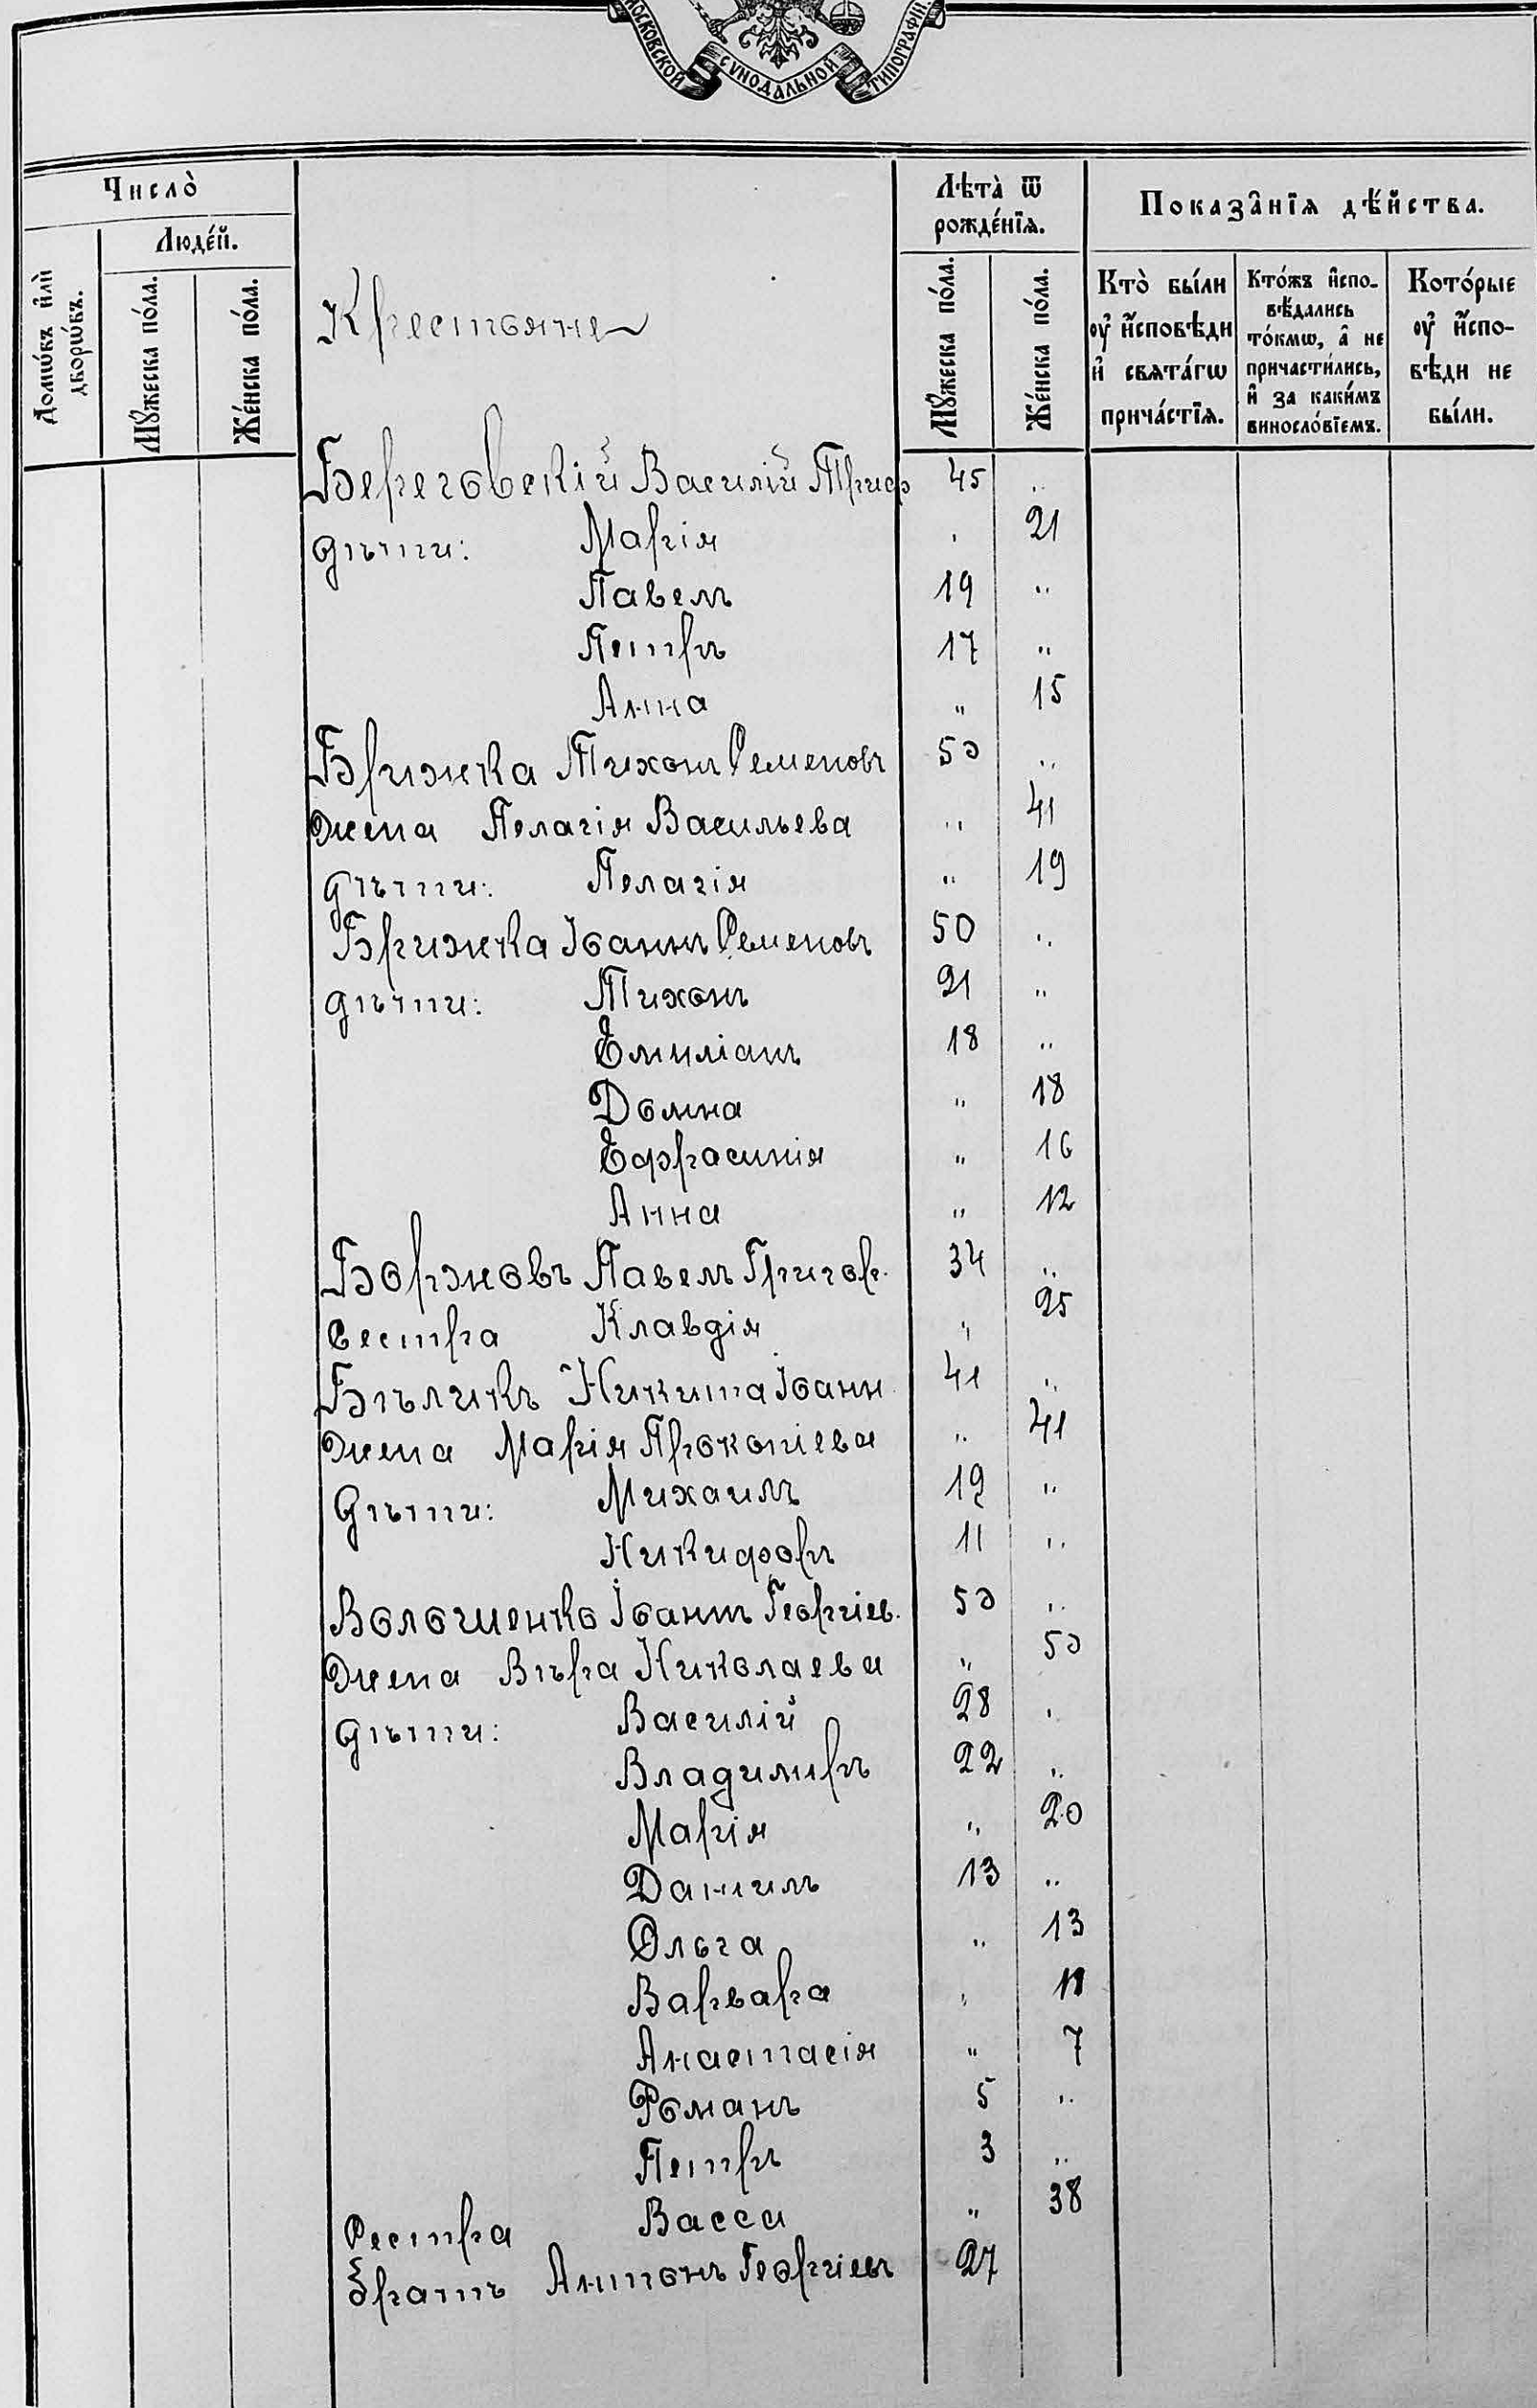 МОСКОВСКОЙ СѴНОДАЛЬНОЙ ТИПОГРАФІИ.
Число̀
Людéй.
Домѡ́въ и҆лѝ дворѡ́въ.
Мꙋ́жеска по́ла.
Же́нска по́ла.
Лѣта̀ ѿ рожде́нїѧ.
Мꙋ́жеска по́ла.
Же́нска по́ла.
Показа̑нїѧ дѣ́йства.
Кто̀ бы́ли ᲂу҆ и҆сповѣди и҆ свѧта́гѡ прича́стїѧ.
Кто́жъ и҆спо-вѣдались то́кмѡ, а҆ не причасти́лись, и҆ за каки́мъ виносло́вїемъ.
Кото́рые ᲂу҆ и҆спо-вѣди не бы́ли.
Крестьяне
Береговскій Василій Триф 45 "
дѣти: Марія " 21
Павелъ 19 "
Петръ 17 "
Анна " 15
Брижка Тихонъ Семеновъ 50 "
жена Пелагія Васильева " 41
дѣти: Пелагія " 19
Брижка Іоаннъ Семеновъ 50 "
дѣти: Тихонъ 21 "
Емиліанъ 18 "
Домна " 18
Ефрасинія " 16
Анна " 12
Боржовъ Павелъ Григор. 34 "
Сестра Клавдія " 25
Бѣликъ Никита Іоанн. 41 "
жена Марія Прокопіева " 41
дѣти: Михаилъ 12 "
Никифоръ 11 "
Волошенко Іоаннъ Георгіев. 50 "
жена Вѣра Николаева " 50
дѣти: Василій 28 "
Владимиръ 22 "
Марія " 20
Даніилъ 13 "
Ольга " 13
Варвара "
Анастасія " 7
Романъ 5 "
Петръ 3 "
Сестра Васса " 38
братъ Антонъ Георгіевъ 27